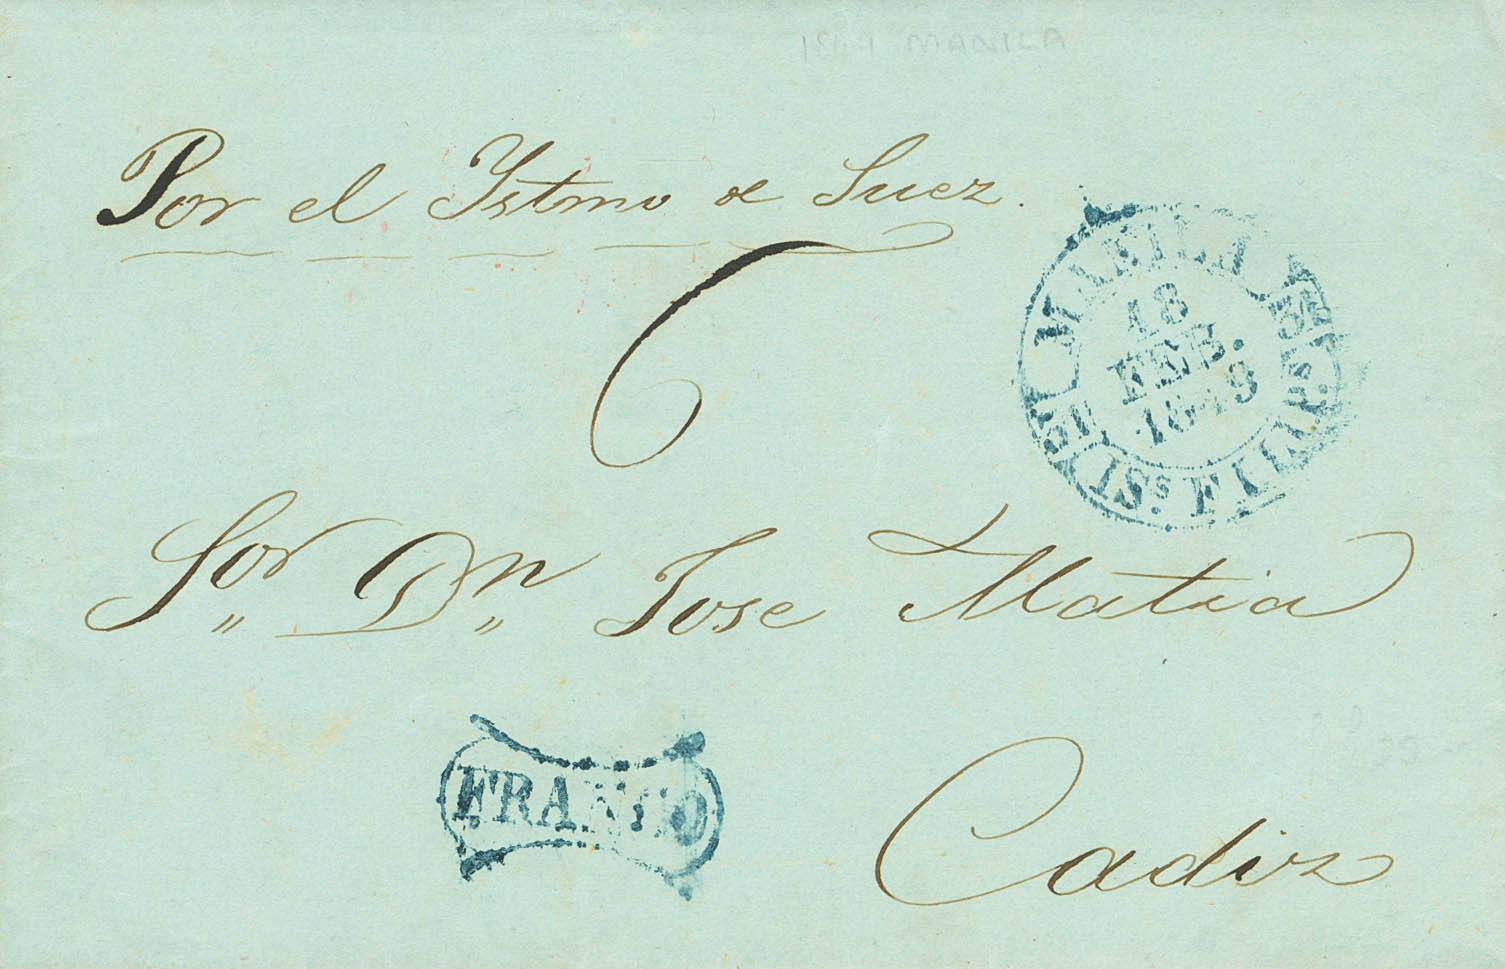 MANILA
Por el Ystmo de Suez.
MANILA
18
FEB.
1849
YSS. FILIPS.
Sor. Dn. Jose Matia
FRANCO
Cadiz